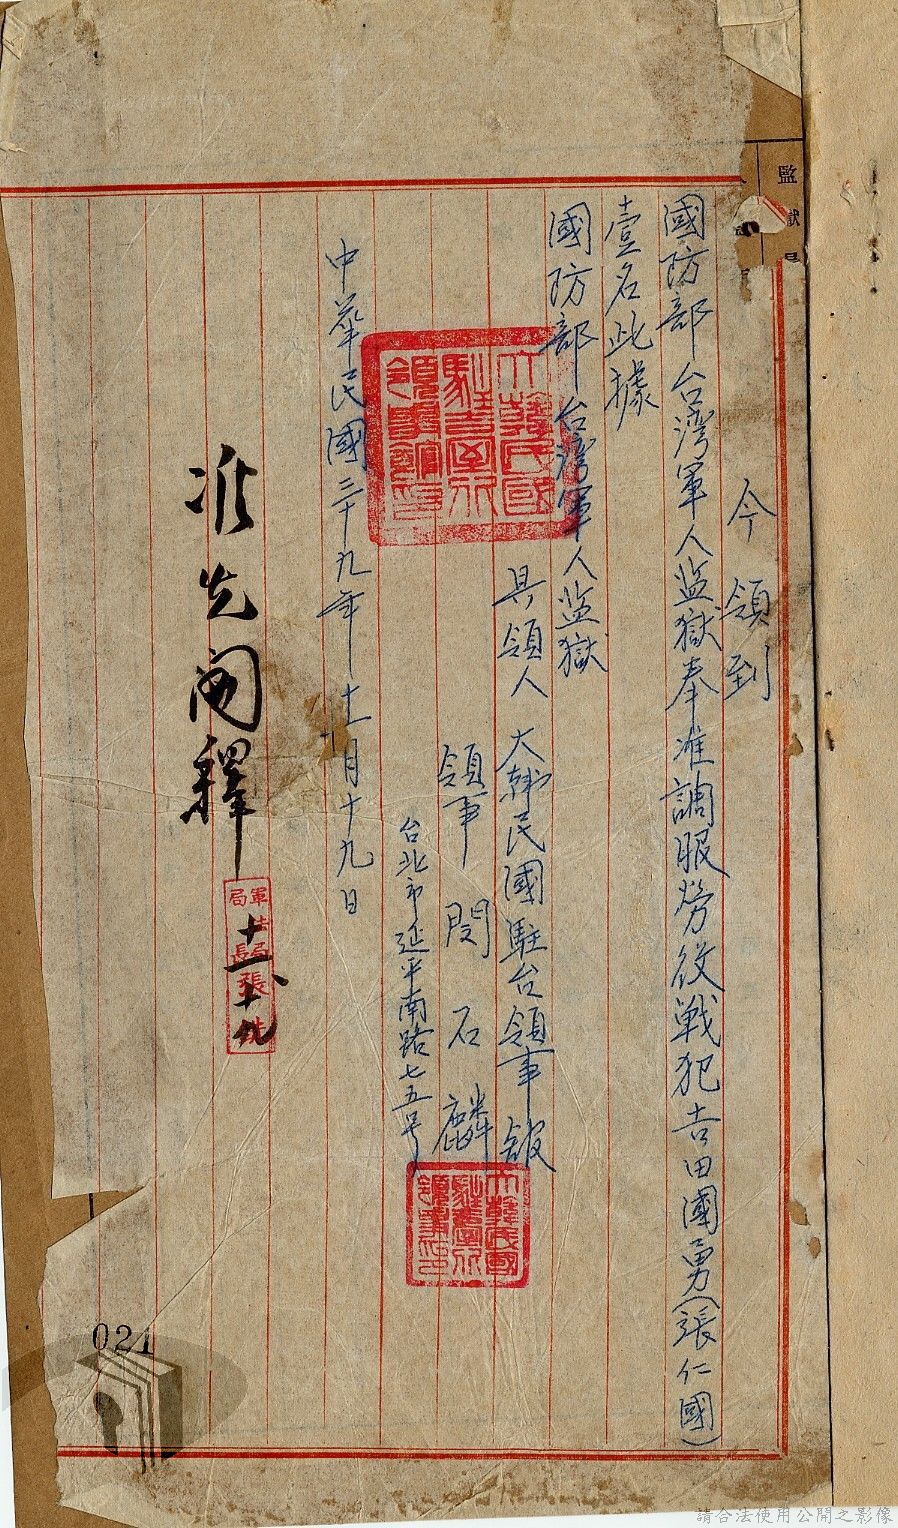 今領到
國防部台湾軍人监獄奉准調服勞役戦犯吉田國勇(張仁國)
壹名此據
國防部台湾軍人监獄
具領人 大韓民國駐台領事舘
領事 閔石麟
台北市延平南路七五号
中華民國三十九年十一月十九日
准先開釋
十一 十九
大韓民國駐臺北領事館印
大韓民國駐臺北領事印
監獄
021
請合法使用公開之影像